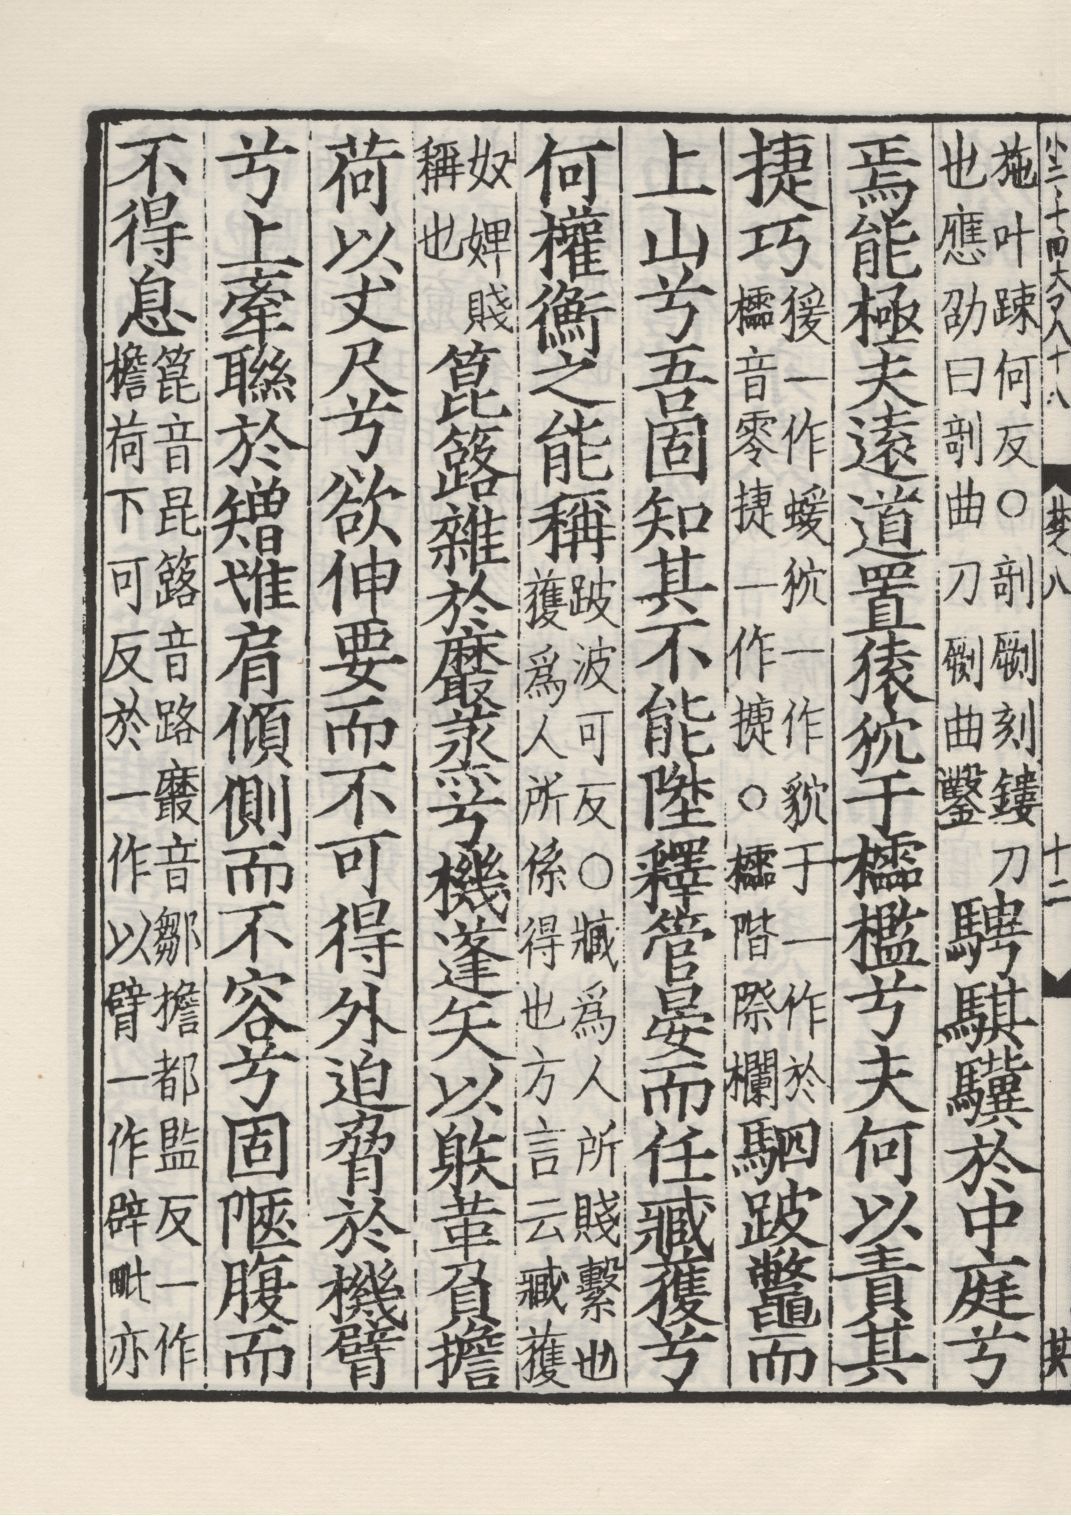 小三十四大又八十八
楚八
十二
其
施叶踈何反○剞劂刻鏤刀
也應劭曰剞曲刀劂曲鑿
騁騏驥於中庭兮
焉能極夫遠道置猨狖于櫺檻兮夫何以責其
捷巧
猨一作蝯狖一作貁于一作於
櫺音零捷一作㨗○櫺階際欄
駟跛鼈而
上山兮吾固知其不能陞釋管晏而任臧獲兮
何權衡之能稱
跛波可反○臧爲人所賤繫也
獲爲人所係得也方言云臧獲
奴婢賤
稱也
箟簬雜於黀蒸兮機蓬矢以䠶革負擔
荷以丈尺兮欲伸要而不可得外迫脅於機臂
兮上牽聯於矰隿肩傾側而不容兮固陿腹而
不得息
箟音昆簬音路黀音鄒擔都監反一作
檐荷下可反於一作以臂一作辟毗亦